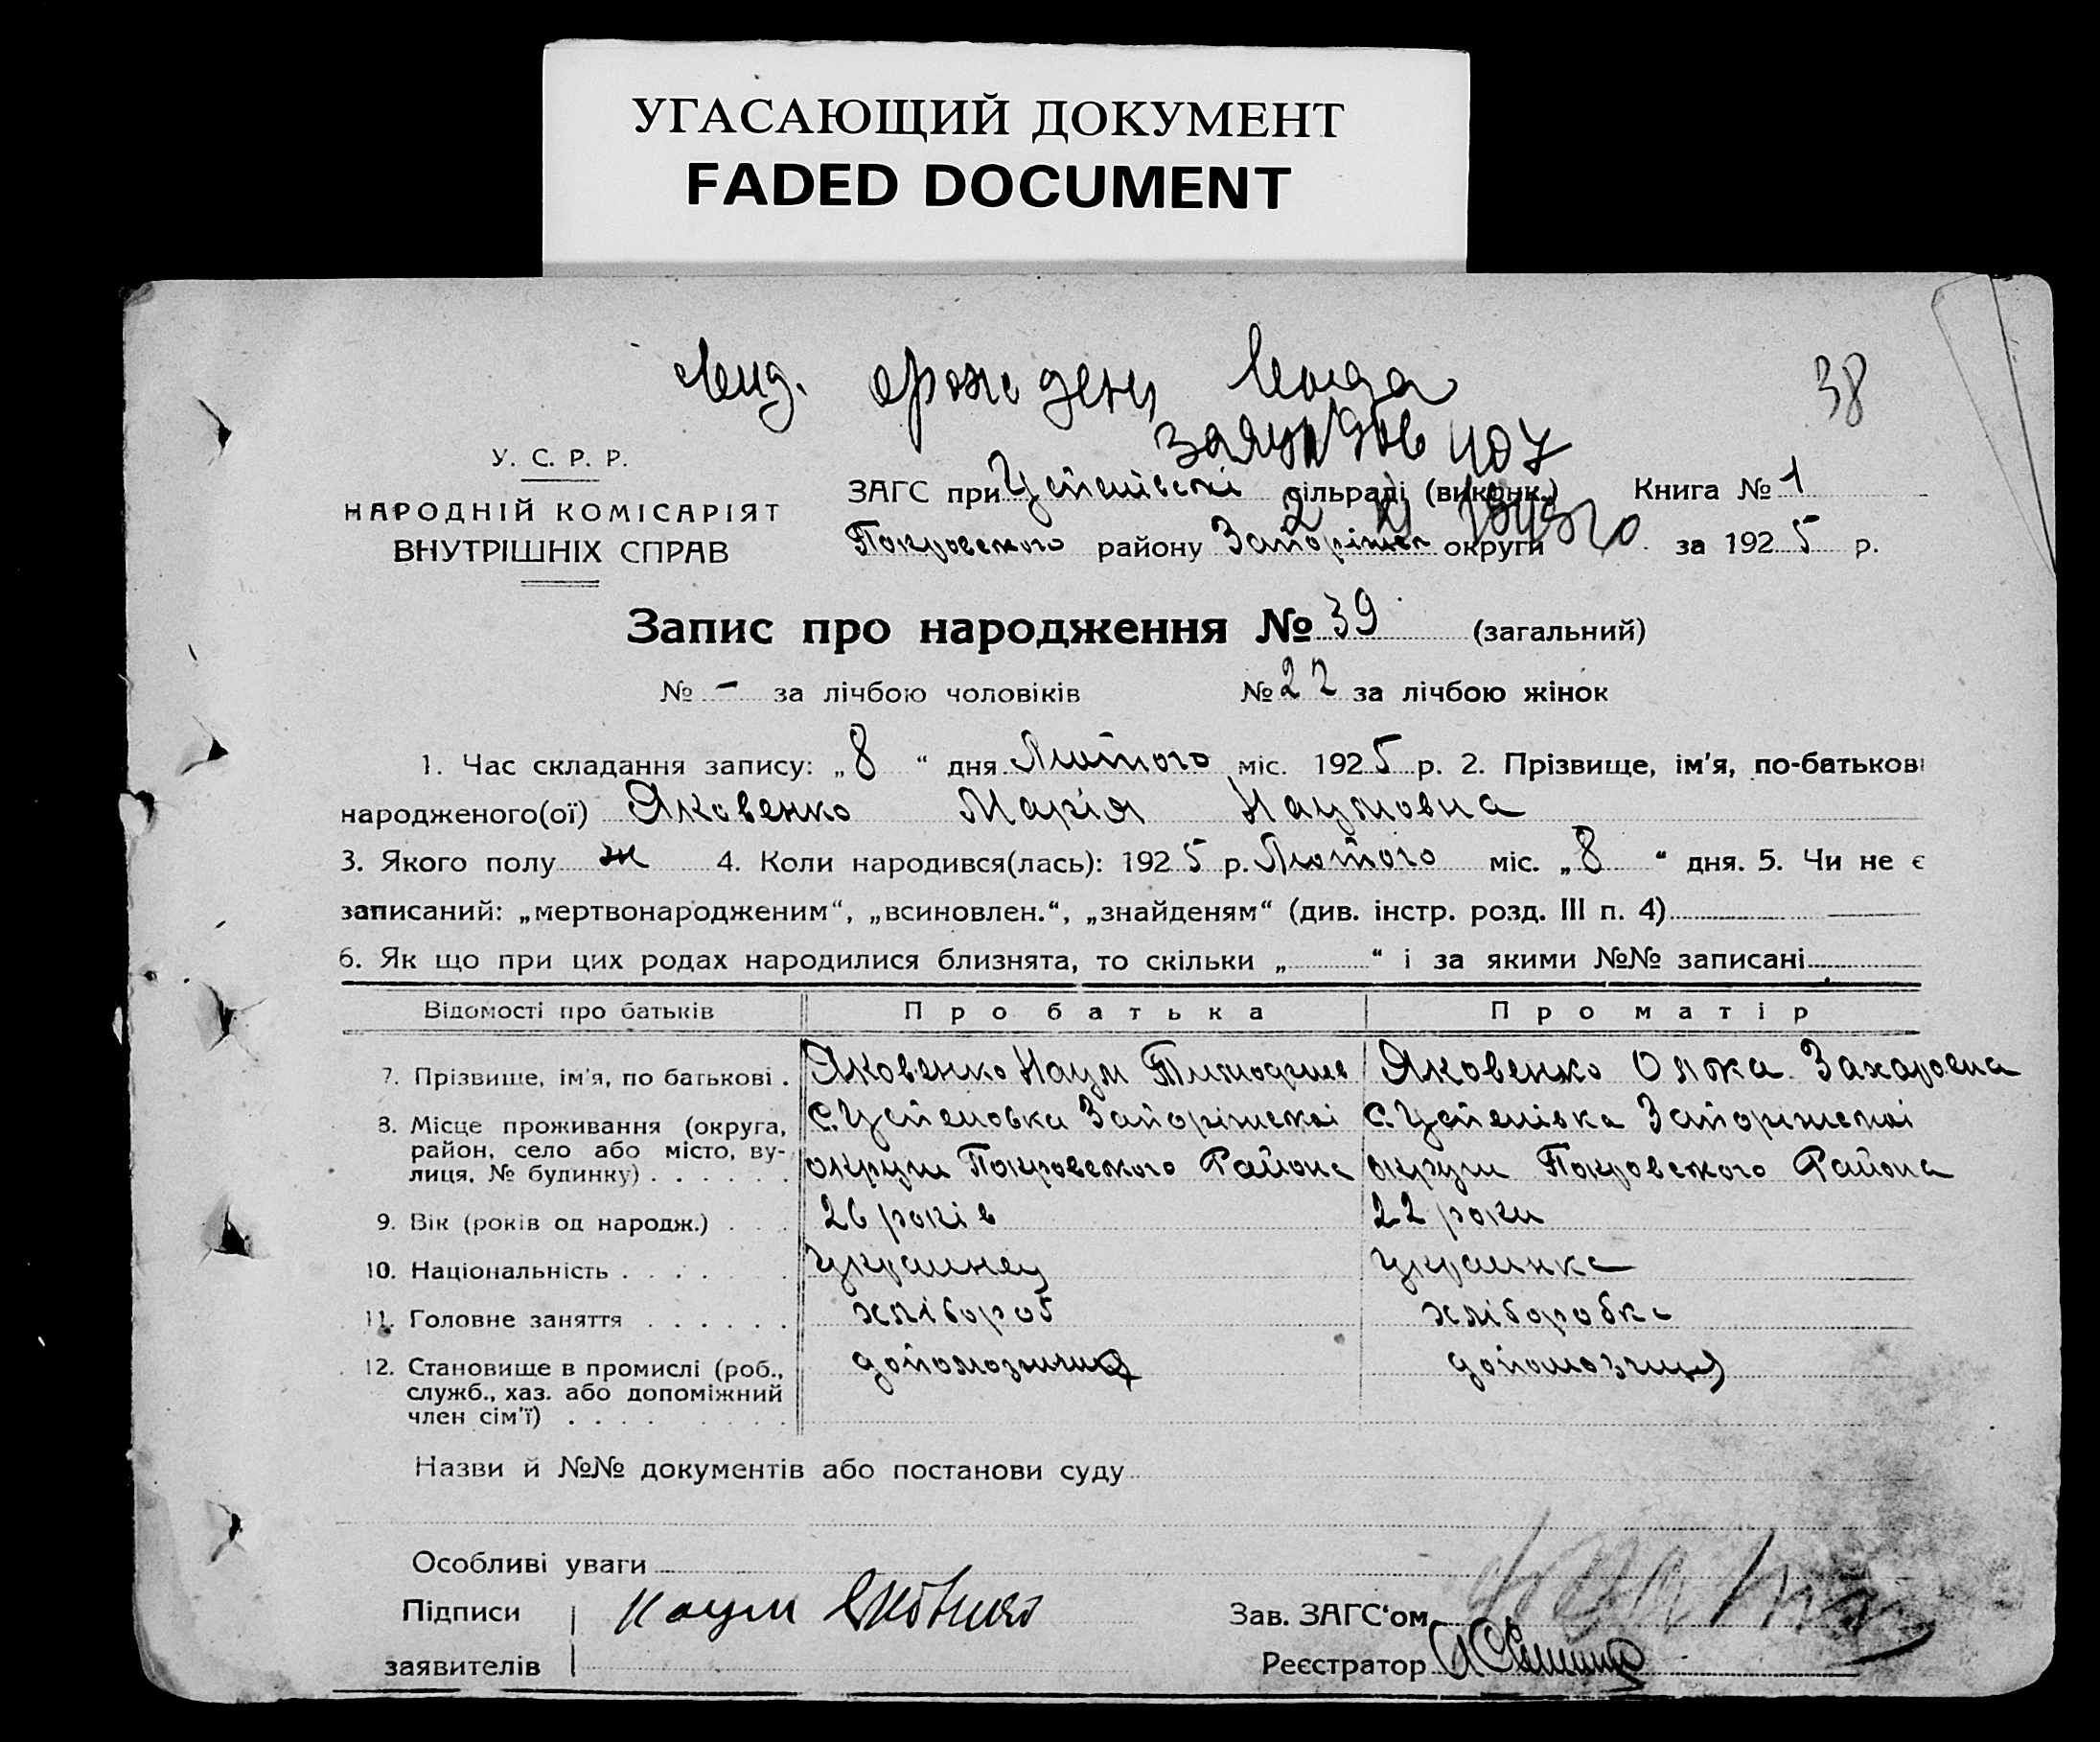 УГАСАЮЩИЙ ДОКУМЕНТ
FADED DOCUMENT
38
У. С. Р. Р.
НАРОДНІЙ КОМІСАРІЯТ
ВНУТРІШНІХ СПРАВ
ЗАГС при Успенівскі сільраді (виконк.) Книга № 1
Покровского району Запоріжск округи за 1925 р.
Запис про народження № 39 (загальний)
№ - за лічбою чоловіків № 22 за лічбою жінок
1. Час складання запису: „8“ дня Лютого міс. 1925 р. 2. Прізвище, ім'я, по-батькові
народженого(ої) Яковенко Марія Наумовна
3. Якого полу ж 4. Коли народився(лась): 1925 р. Лютого міс. „8“ дня. 5. Чи не є
записаний: „мертвонародженим“, „всиновлен.“, „знайденям“ (див. інстр. розд. III п. 4)
6. Як що при цих родах народилися близнята, то скільки „ “ і за якими №№ записані
Відомості про батьків Про батька Про матір
7. Прізвище, ім'я, по батькові . Яковенко Наум Яковенко Олжа Захаровна
8. Місце проживання (округа, с. Успеновка Запоріжскоі с. Успенівка Запоріжскоі
район, село або місто, ву-
лиця, № будинку) . . . . . . округи Покровского Района округи Покровского Района
9. Вік (років од народж.) . . . 26 років 22 роки
10. Національність . . . . . . Украинец Украинка
11. Головне заняття . . . . . . хлібороб хліборобка
12. Становище в промислі (роб.,
служб., хаз. або допоміжний
член сім'ї) . . . . . .
Назви й №№ документів або постанови суду
Особливі уваги
Підписи Наум Зав. ЗАГС'ом
заявителів Реєстратор